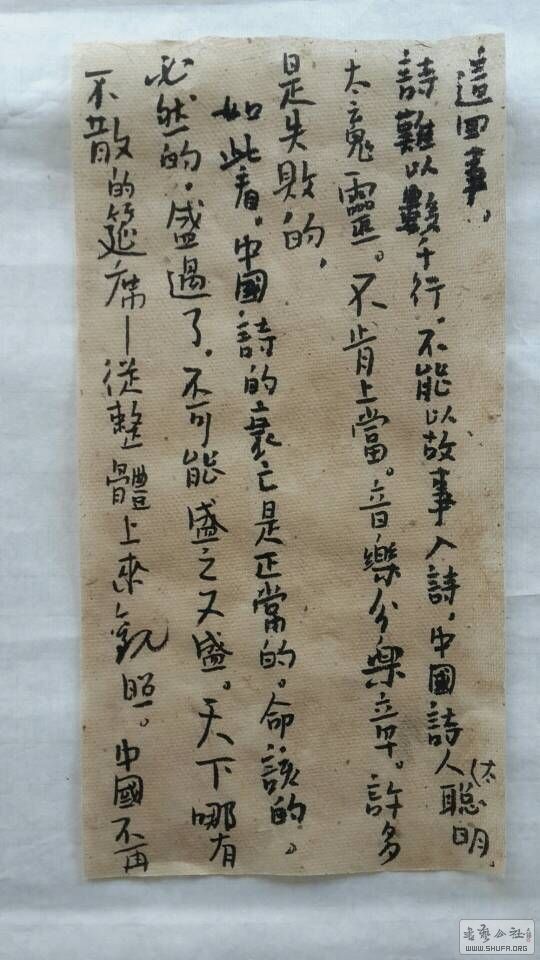 這回事。
詩難以數千行,不能以故事入詩,中國詩人(太聰明。
太靈。不肯上當。音樂分樂章。許多
是失敗的,
如此看,中國詩的衰亡是正常的。命該的。
必然的,盛過了,不可能盛之又盛。天下哪有
不散的筵席—從整體上來觀照。中國不再
WWW.SHUFA.ORG